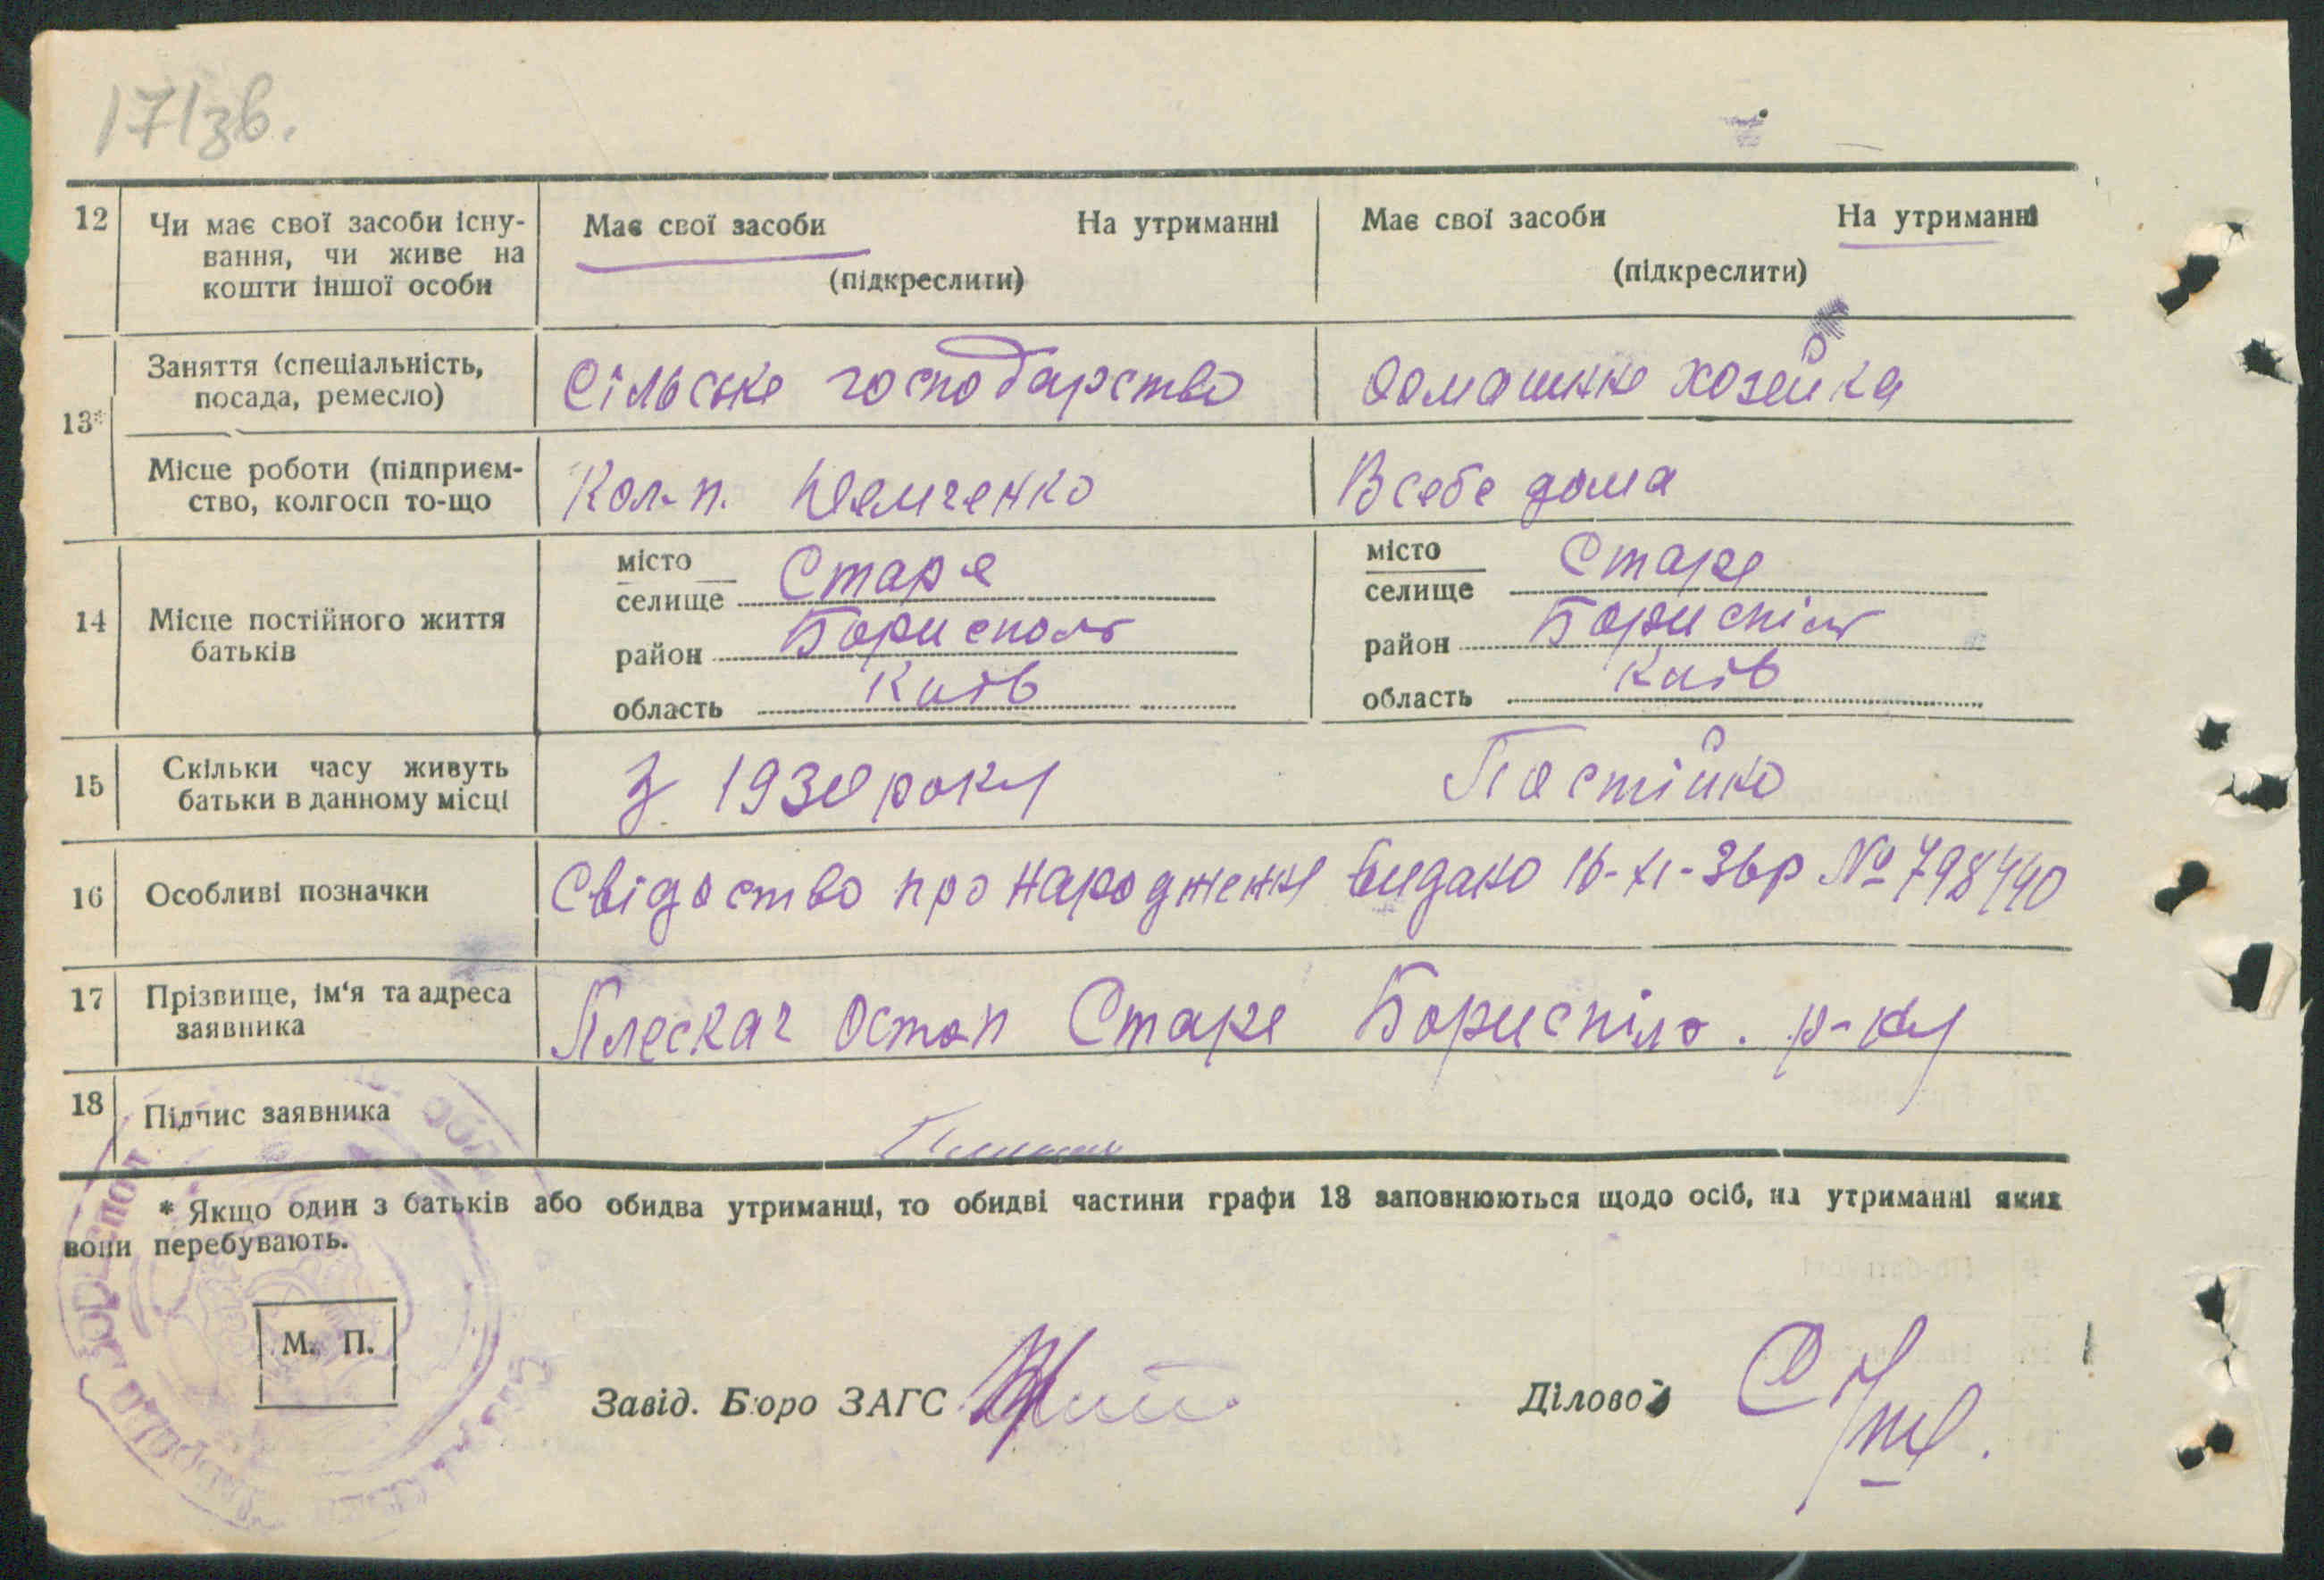 171зв.
12 Чи має свої засоби існу-
вання, чи живе на
кошти іншої особи
Має свої засоби На утриманні
(підкреслити)
Має свої засоби На утриманні
(підкреслити)
13*
Заняття (спеціальність,
посада, ремесло)
Сільське господарство
домашне хозейка
Місце роботи (підприєм-
ство, колгосп то-що
Кол-п.
В себе дома
14 Місце постійного життя
батьків
місто
селище Старе
район Борисполь
область Київ
місто
селище Старе
район Бориспіль
область Київ
15 Скільки часу живуть
батьки в данному місці
З 1930 року Постійно
16 Особливі позначки
Свідоство про народження видано 16-XI-36р № 798440
17 Прізвище, ім'я та адреса
заявника
Плескач Остап Старе Бориспіль. р-ну
18 Підпис заявника
* Якщо один з батьків або обидва утриманці, то обидві частини графи 13 заповнюються щодо осіб, на утриманні яких
вони перебувають.
М. П.
Завід. Бюро ЗАГС
Діловод